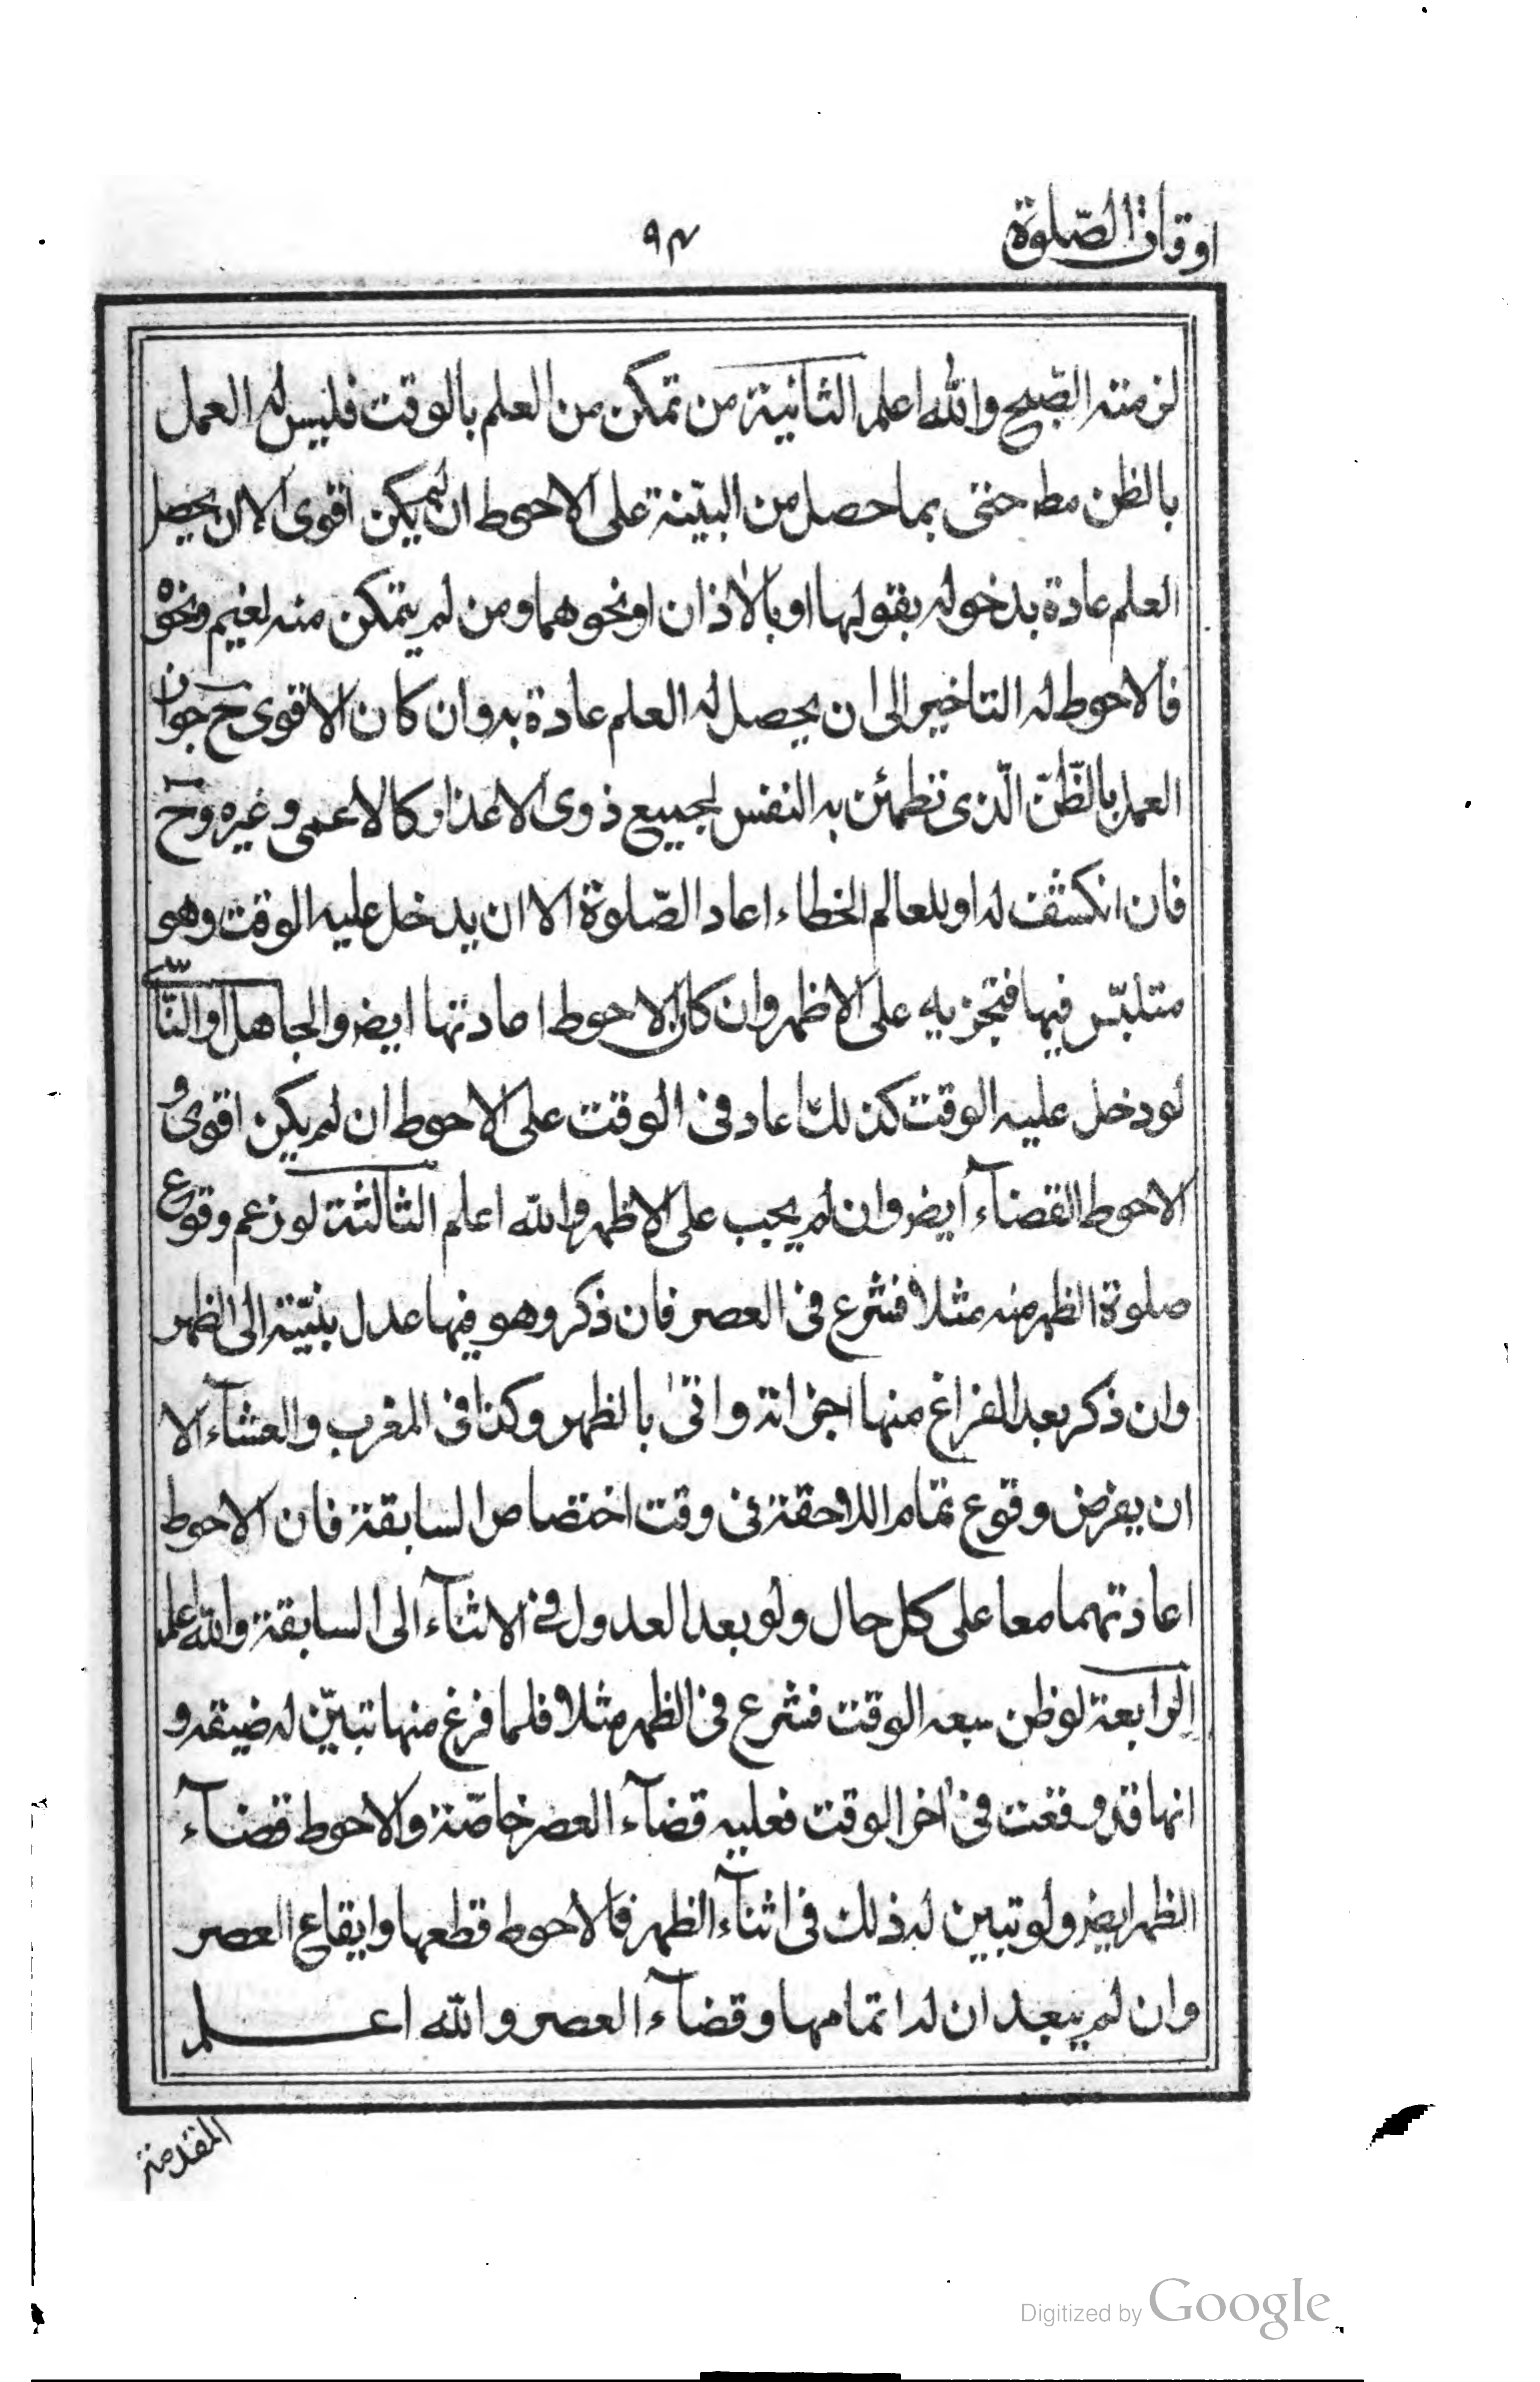 اوقات الصّلوة
٩٣
لزمته الصّبح والله اعلم الثانية من تمكن من العلم بالوقت فليس له العمل
بالظن مط حتى بما حصل من البيّنة على الاحوط ان لم يكن اقوى الا ان يحصل
العلم عادة بدخوله بقولها او بالاذان او نحوهما ومن لم يتمكن منه لغيم ونحوه
فالاحوط له التاخير الى ان يحصل له العلم عادة به وان كان الاقوى ح جواز
العمل بالظّنّ الّذى تطمئن به النفس لجميع ذوى الاعذار كالاعمى وغيره وح
فان انكشف له او للعالم الخطاء اعاد الصّلوة الا ان يدخل عليه الوقت وهو
متلبّس فيها فتجزيه على الاظهر وان كان الاحوط اعادتها ايض والجاهل او النّاسى
لو دخل عليه الوقت كذلك اعاد فى الوقت على الاحوط ان لم يكن اقوى و
الاحوط القضآء ايض وان لم يجب على الاظهر والله اعلم الثالثة لو زعم وقوع
صلوة الظهر منه مثلا فشرع فى العصر فان ذكر وهو فيها عدل بنيّته الى الظهر
وان ذكر بعد الفراغ منها اجزاته واتى بالظهر وكذا فى المغرب والعشآء الا
ان يفرض وقوع تمام اللاحقة فى وقت اختصاص السابقة فان الاحوط
اعادتهما معا على كل حال ولو بعد العدول فى الاثنآء الى السابقة والله اعلم
الرابعة لو ظن سعه الوقت فشرع فى الظهر مثلا فلما فرغ منها تبيّن له ضيقه و
انها قد وقعت فى اخر الوقت فعليه قضآء العصر خاصّة والاحوط قضآء
الظهر ايض ولو تبين له ذلك فى اثنآء الظهر فالاحوط قطعها وايقاع العصر
وان لم يبعد ان له اتمامها وقضآء العصر والله اعلم
المقدمة
Digitized by Google